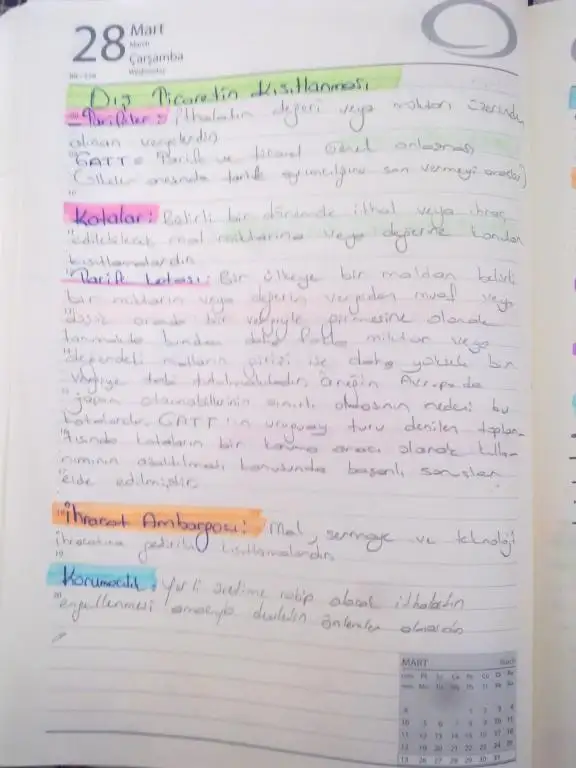 28 Mart
March
Çarşamba
Wednesday
Dış Ticaretin Kısıtlanması
Tarifeler: İthalatın değeri veya miktarı üzerinden
alınan vergilerdir.
GATT: Tarife ve ticaret Genel anlaşması
(ülkeler arasında tarife ayrımcılığına son vermeyi amaçlar)
Kotalar: Belirli bir dönemde ithal veya ihraç
edilebilecek mal miktarına veya değerine konulan
kısıtlamalardır.
Tarife kotası: Bir ülkeye bir maldan belirli
bir miktarın veya değerin vergiden muaf veya
düşük oranda bir vergiyle girmesine olanak
tanımakta bundan daha fazla miktar veya
değerdeki malların girişi ise daha yüksek bir
vergiye tabi tutulmaktadır. Örneğin Avrupa'da
japon otomobillerinin sınırlı olmasının nedeni bu
kotalardır. GATT'ın uruguay turu denilen toplan-
tısında kotaların bir koruma aracı olarak kulla-
nımının azaltılması konusunda başarılı sonuçlar
elde edilmiştir.
İhracat Ambargosu: Mal, sermaye ve teknoloji
ihracatına getirilen kısıtlamalardır.
Korumacılık: Yerli üretime rakip olacak ithalatın
engellenmesi amacıyla devletin önlemler almasıdır
MART
March